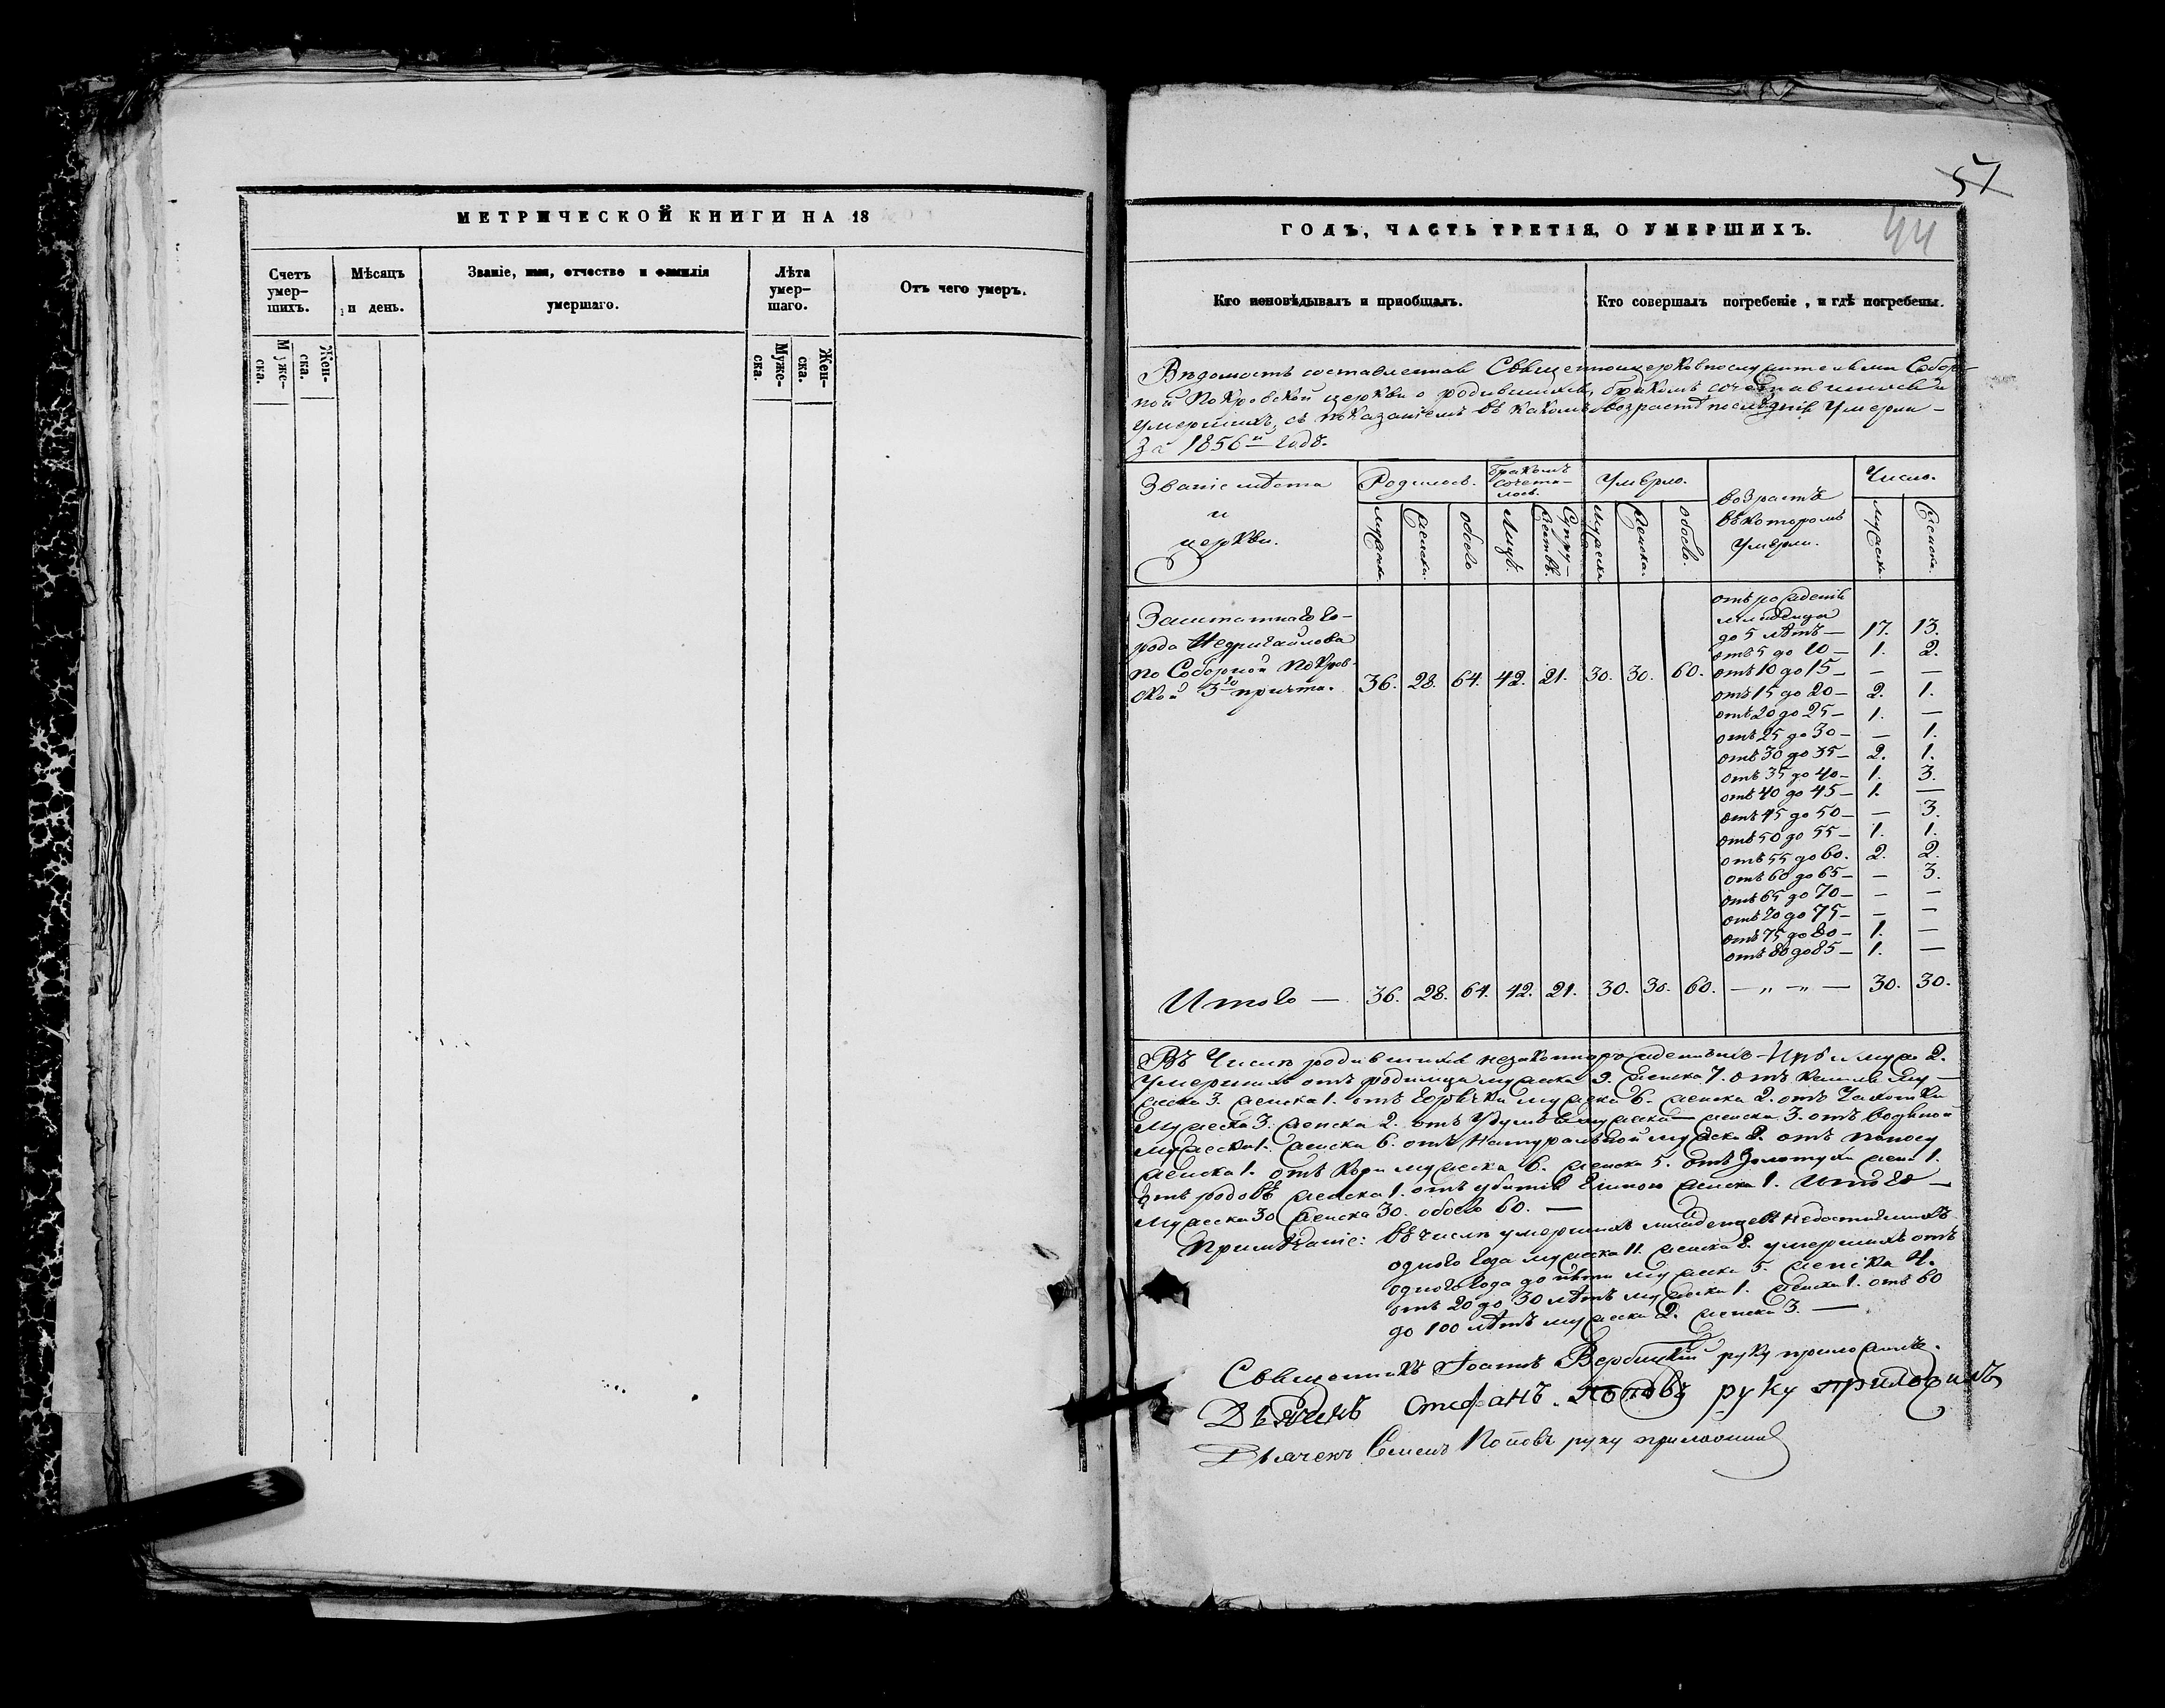 МЕТРИЧЕСКОЙ КНИГИ НА 18
Счетъ умер-шихъ.
Мѣсяцъ и день.
Званіе, имя, отчество и фамилія умершаго.
Лѣта умер-шаго.
Отъ чего умеръ.
Муже-ска.
Жен-ска.
Муже-ска.
Жен-ска.
57
44
ГОДЪ, ЧАСТЬ ТРЕТІЯ, О УМЕРШИХЪ.
Кто исповѣдывалъ и пріобщалъ.
Кто совершалъ погребеніе, и гдѣ погребены.
Вѣдомость составленная Священноцерковнослужителями Собор-
ной Покровской церкви о родившихся, бракомъ сочетавшихся и
умершихъ, съ показаніемъ въ какомъ возрастѣ послѣдніе умерли
За 1856й годъ.
Званіе мѣста и церкви.
Родилось.
Бракомъ сочета-лось.
Умерло.
возрастъ въ которомъ умерли.
Число.
мужска.
женска.
обоего
Лицъ.
Супру-жествъ.
мужска
женска.
обоего.
мужска.
женска.
Заштатнаго го-
рода Недригайлова
по Соборной Покров-
ской 3го причта.
36. 28. 64. 42. 21. 30. 30. 60.
отъ рожденія
младенцы
до 5 лѣтъ — 17. 13.
отъ 5 до 10 — 1. 2.
отъ 10 до 15 — — —
отъ 15 до 20 — 2. 1.
отъ 20 до 25 — 1. —
отъ 25 до 30 — — 1.
отъ 30 до 35 — 2. 1.
отъ 35 до 40 — 1. 3.
отъ 40 до 45 — 1. —
отъ 45 до 50 — — 3.
отъ 50 до 55 — 1. 1.
отъ 55 до 60. 2. 2.
отъ 60 до 65 — — 3.
отъ 65 до 70 — — —
отъ 70 до 75 — — —
отъ 75 до 80 — 1. —
отъ 80 до 85 — 1. —
Итого — 36. 28. 64. 42. 21. 30. 30. 60. — „ — „ — 30. 30.
Въ числѣ родившихся незаконнорожденныхъ 2.
Умершихъ отъ родимца мужска 9. женска 7. отъ кашля му-
жска 3. женска 1. отъ горячки мужска 6. женска 2. отъ чахотки
мужска 3. женска 2. отъ мужска — женска 3. отъ водяной
мужска 1. женска 6. отъ натуральной мужска 2. отъ поносу
женска 1. отъ кори мужска 6. женска 5. отъ золотухи жен. 1.
отъ родовъ женска 1. отъ убитія женска 1. Итого —
мужска 30 женска 30. обоего 60. —
Примѣчаніе: въ числѣ умершихъ младенцевъ недостигшихъ
одного года мужска 11. женска 8. умершихъ отъ
одного года до пяти мужска 5. женска 4.
отъ 20 до 30 лѣтъ мужска 1. женска 1. отъ 60
до 100 лѣтъ мужска 2. женска 3. —
Священникъ Іоаннъ Вербицкій руку приложилъ.
Дьячекъ Стефанъ Поповъ руку приложилъ
Дьячекъ Семенъ Поповъ руку приложилъ